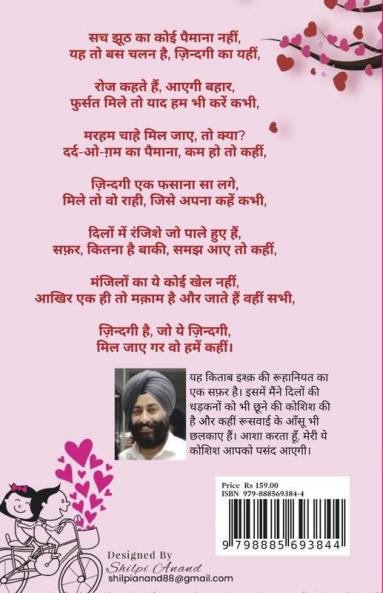 सच झूठ का कोई पैमाना नहीं,
यह तो बस चलन है, ज़िन्दगी का यहीं,
रोज कहते हैं, आएगी बहार,
फुर्सत मिले तो याद हम भी करें कभी,
मरहम चाहे मिल जाए, तो क्या?
दर्द-ओ-ग़म का पैमाना, कम हो तो कहीं,
ज़िन्दगी एक फसाना सा लगे,
मिले तो वो राही, जिसे अपना कहें कभी,
दिलों में रंजिशे जो पाले हुए हैं,
सफ़र, कितना है बाकी, समझ आए तो कहीं,
मंजिलों का ये कोई खेल नहीं,
आखिर एक ही तो मक़ाम है और जाते हैं वहीं सभी,
ज़िन्दगी है, जो ये ज़िन्दगी,
मिल जाए गर वो हमें कहीं।
यह किताब इश्क़ की रूहानियत का
एक सफ़र है। इसमें मैंने दिलों की
धड़कनों को भी छूने की कोशिश की
है और कहीं रूसवाई के आँसू भी
छलकाए हैं। आशा करता हूँ, मेरी ये
कोशिश आपको पसंद आएगी।
Price Rs 159.00
ISBN 979-888569384-4
9 798885 693844
Designed By
Shilpi Anand
shilpianand88@gmail.com